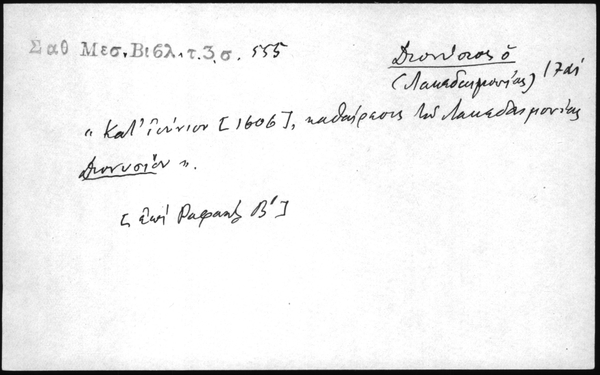 Σαθ Μεσ. Βιβλ. τ. 3. σ. 555
Διονύσιος ὁ
(Λακεδαιμονίας) 17αἰ
"Κατ' Ἰούνιον [1606], καθαίρεσις τοῦ Λακεδαιμονίας
Διονυσίου".
[ἐπὶ Ραφαὴλ Β']